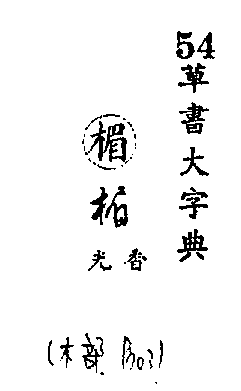 54
草書大字典
楣
楣
香光
(木部